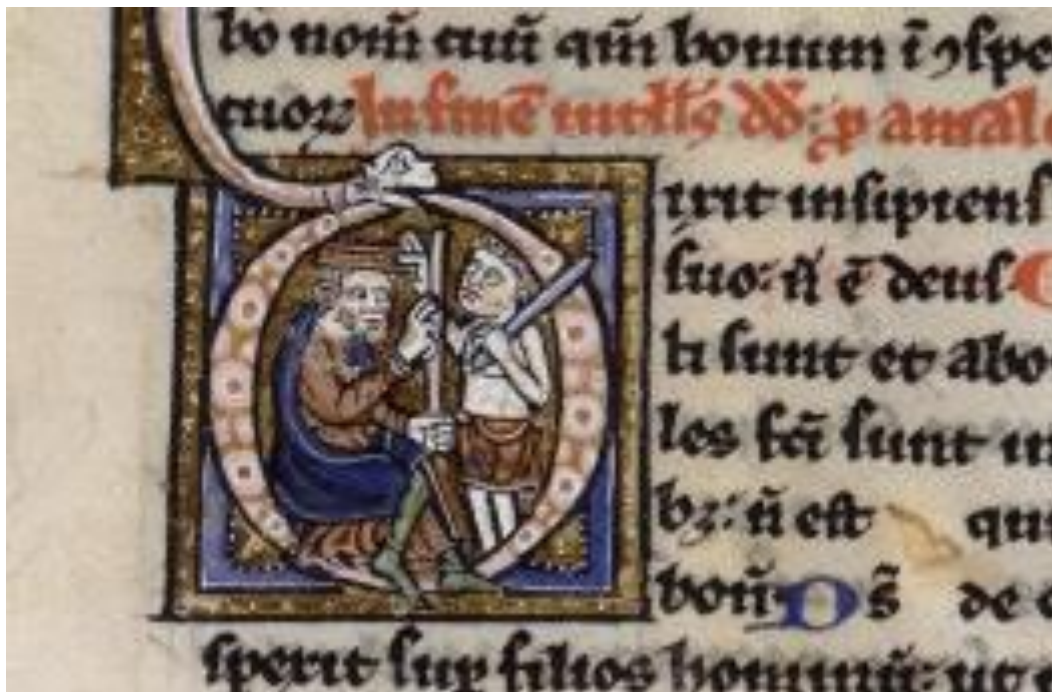 bo nom̄ tuū qm̄ bonum ī ꝯspe
tuoꝝ In finē intells̄ dd̄: ꝓ amale
D ixit insipiens
suo: ñ ē deus
ti sunt et abo
les fcī sunt in
bꝫ: ñ est qui
bonū Ds̄ de c
sperit sup̱ filios hominū: ut